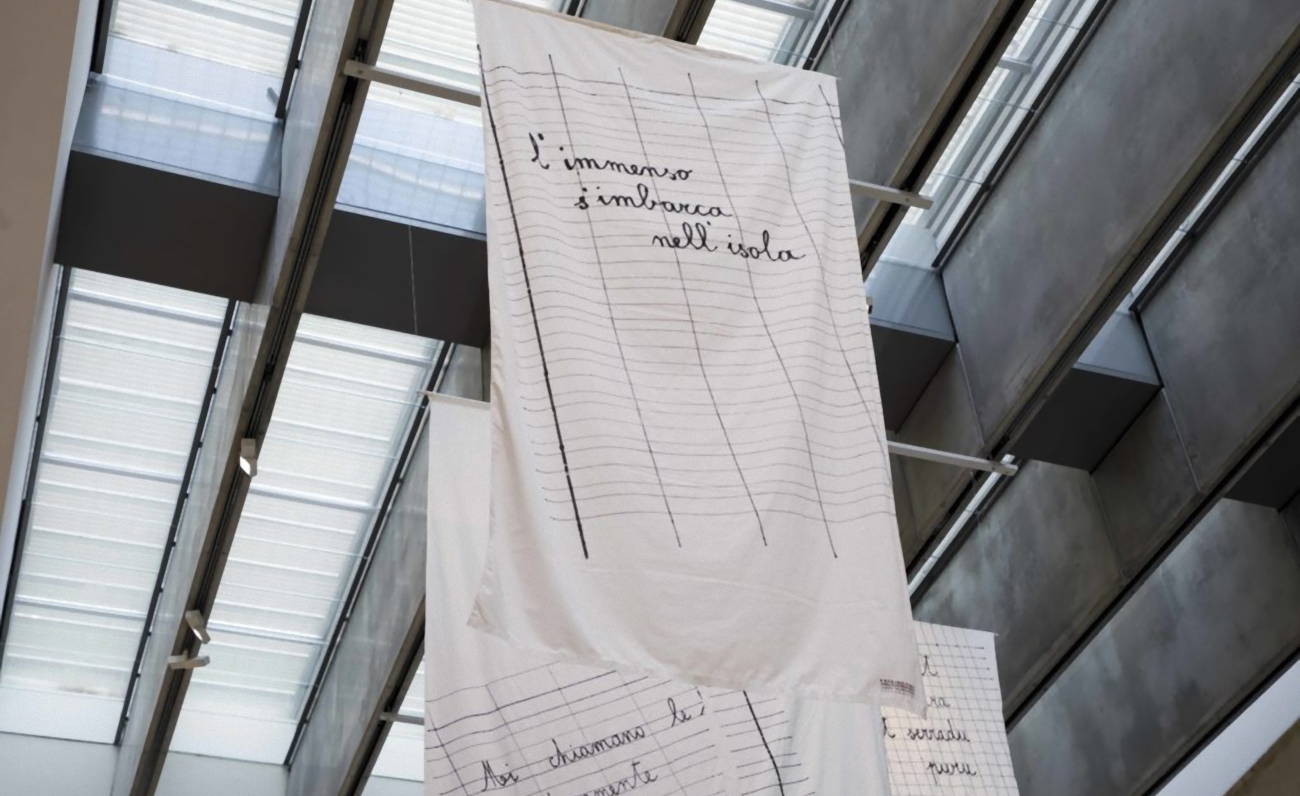 l'immenso
s'imbarca
nell'isola
Mi chiamano le
mente
serradu
puru